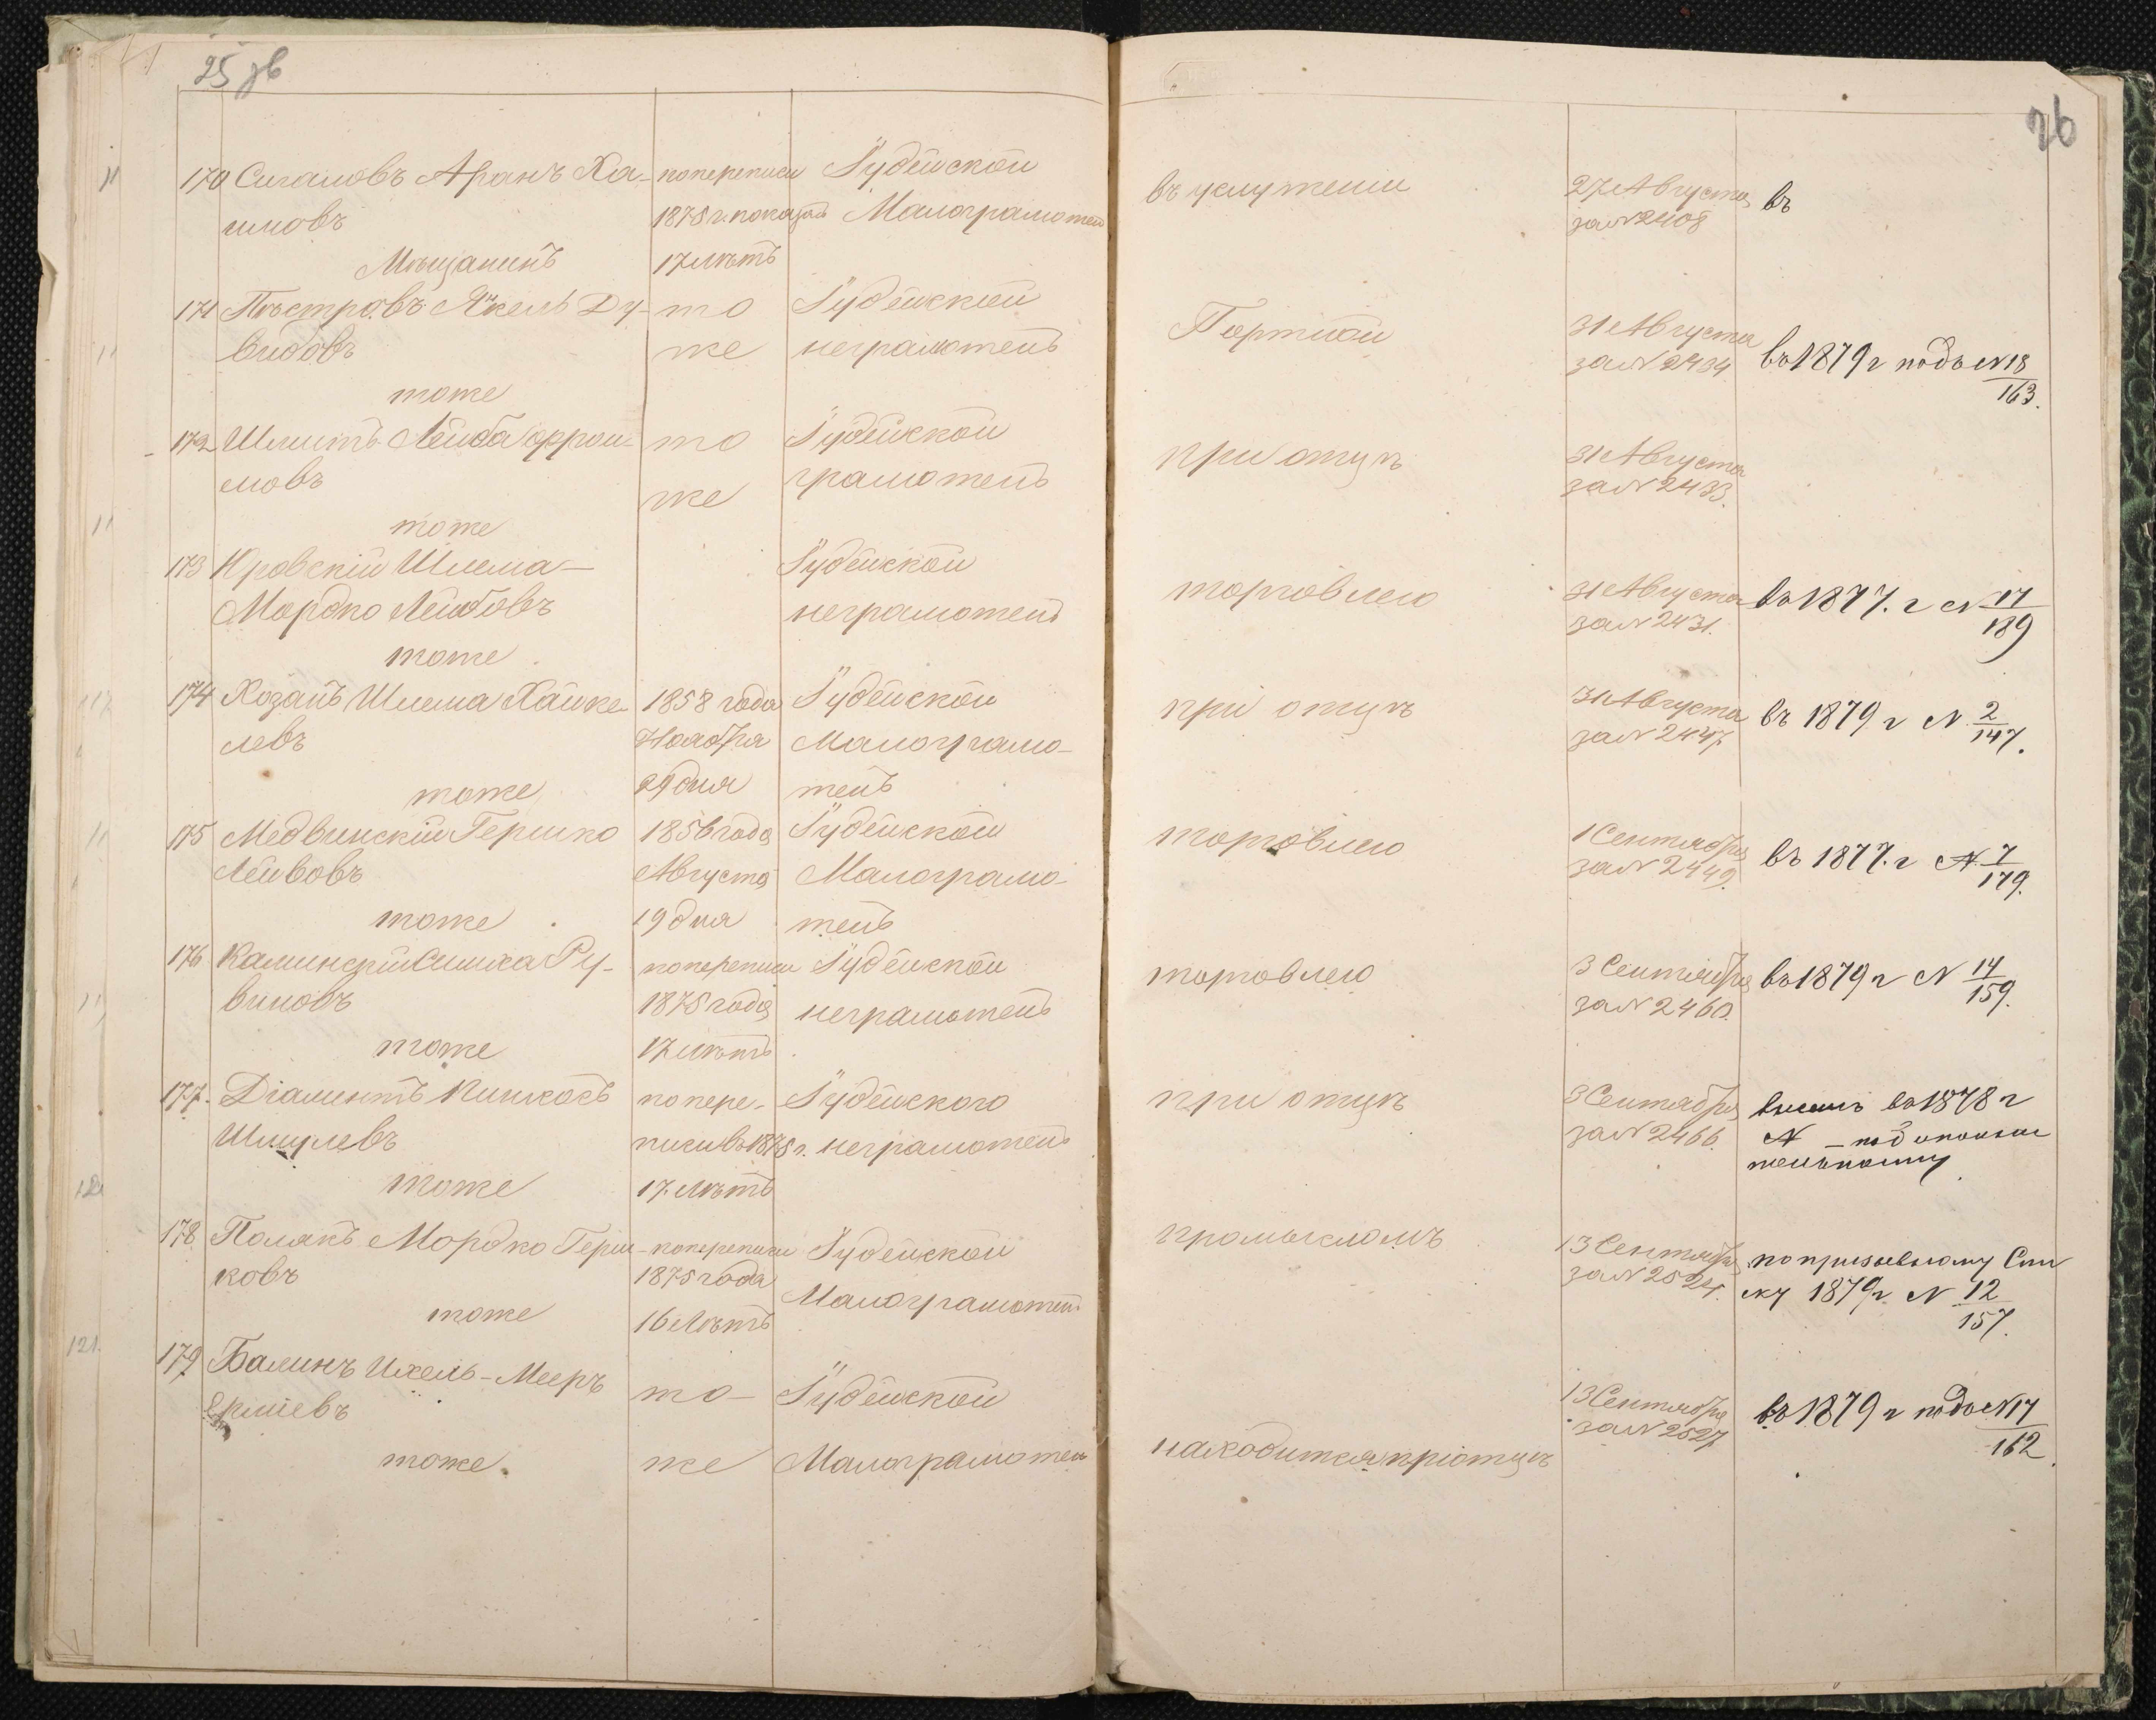 25 зв
26
170 Сигаловъ Аранъ Ха-
имовъ
Мѣщанинъ
попереписи
1875 г. показанъ
17 лѣтъ
Іудейской
Малограмотенъ
въ услуженіи
27 Августа
за N 2408
въ
171 Пѣстровъ Янкель Ду-
видовъ
тоже
то
же
Іудейской
неграмотенъ
Портной
31 Августа
за N 2434
въ 1879 г подъ N 18
163.
172 Шмитъ Лейба
мовъ
тоже
то
же
Іудейской
грамотенъ
при отцѣ
31 Августа
за N 2433.
173 Шлема-
Мордко Лейбовъ
тоже
Іудейской
неграмотенъ
торговлею
31 Августа
за N 2431.
въ 1877. г N 17
189
174 Хозанъ Шлема Хайке
левъ
тоже
1858 года
Ноября
29 дня
Іудейской
Малограмо-
тенъ
при отцѣ
31 Августа
за N 2447.
въ 1879 г N 2
147.
175 Медвинскій Гершко
Лейбовъ
тоже
1856 года
Августа
19 дня
Іудейской
Малограмо-
тенъ
торговлею
1 Сентября
за N 2449.
въ 1877. г N 7
179.
176 Каминскій Симха Ру-
виновъ
тоже
попереписи
1875 года
17 лѣтъ
Іудейской
неграмотенъ
торговлею
3 Сентября
за N 2460.
въ 1879 г N 14
159.
177. Діамантъ Пинхосъ
Шмулевъ
тоже
попере-
писи въ 1875 г.
17. лѣтъ
Іудейского
неграмотенъ
при отцѣ
3 Сентября
за N 2466.
внесенъ въ 1878 г
N –
178 Полякъ Мордко Герш-
ковъ
тоже
попереписи
1875 года
16 лѣтъ
Іудейской
Малограмотенъ
промысломъ
13 Сентября
за N 2524.
по призывному Спи
ску 1879 г. N 12
157.
179. Балинъ Ихель-Мееръ
тоже.
то-
же
Іудейской
Малограмотен
находится при отцѣ
13 Сентября
за N 2527
въ 1879 г подъ N 17
162.